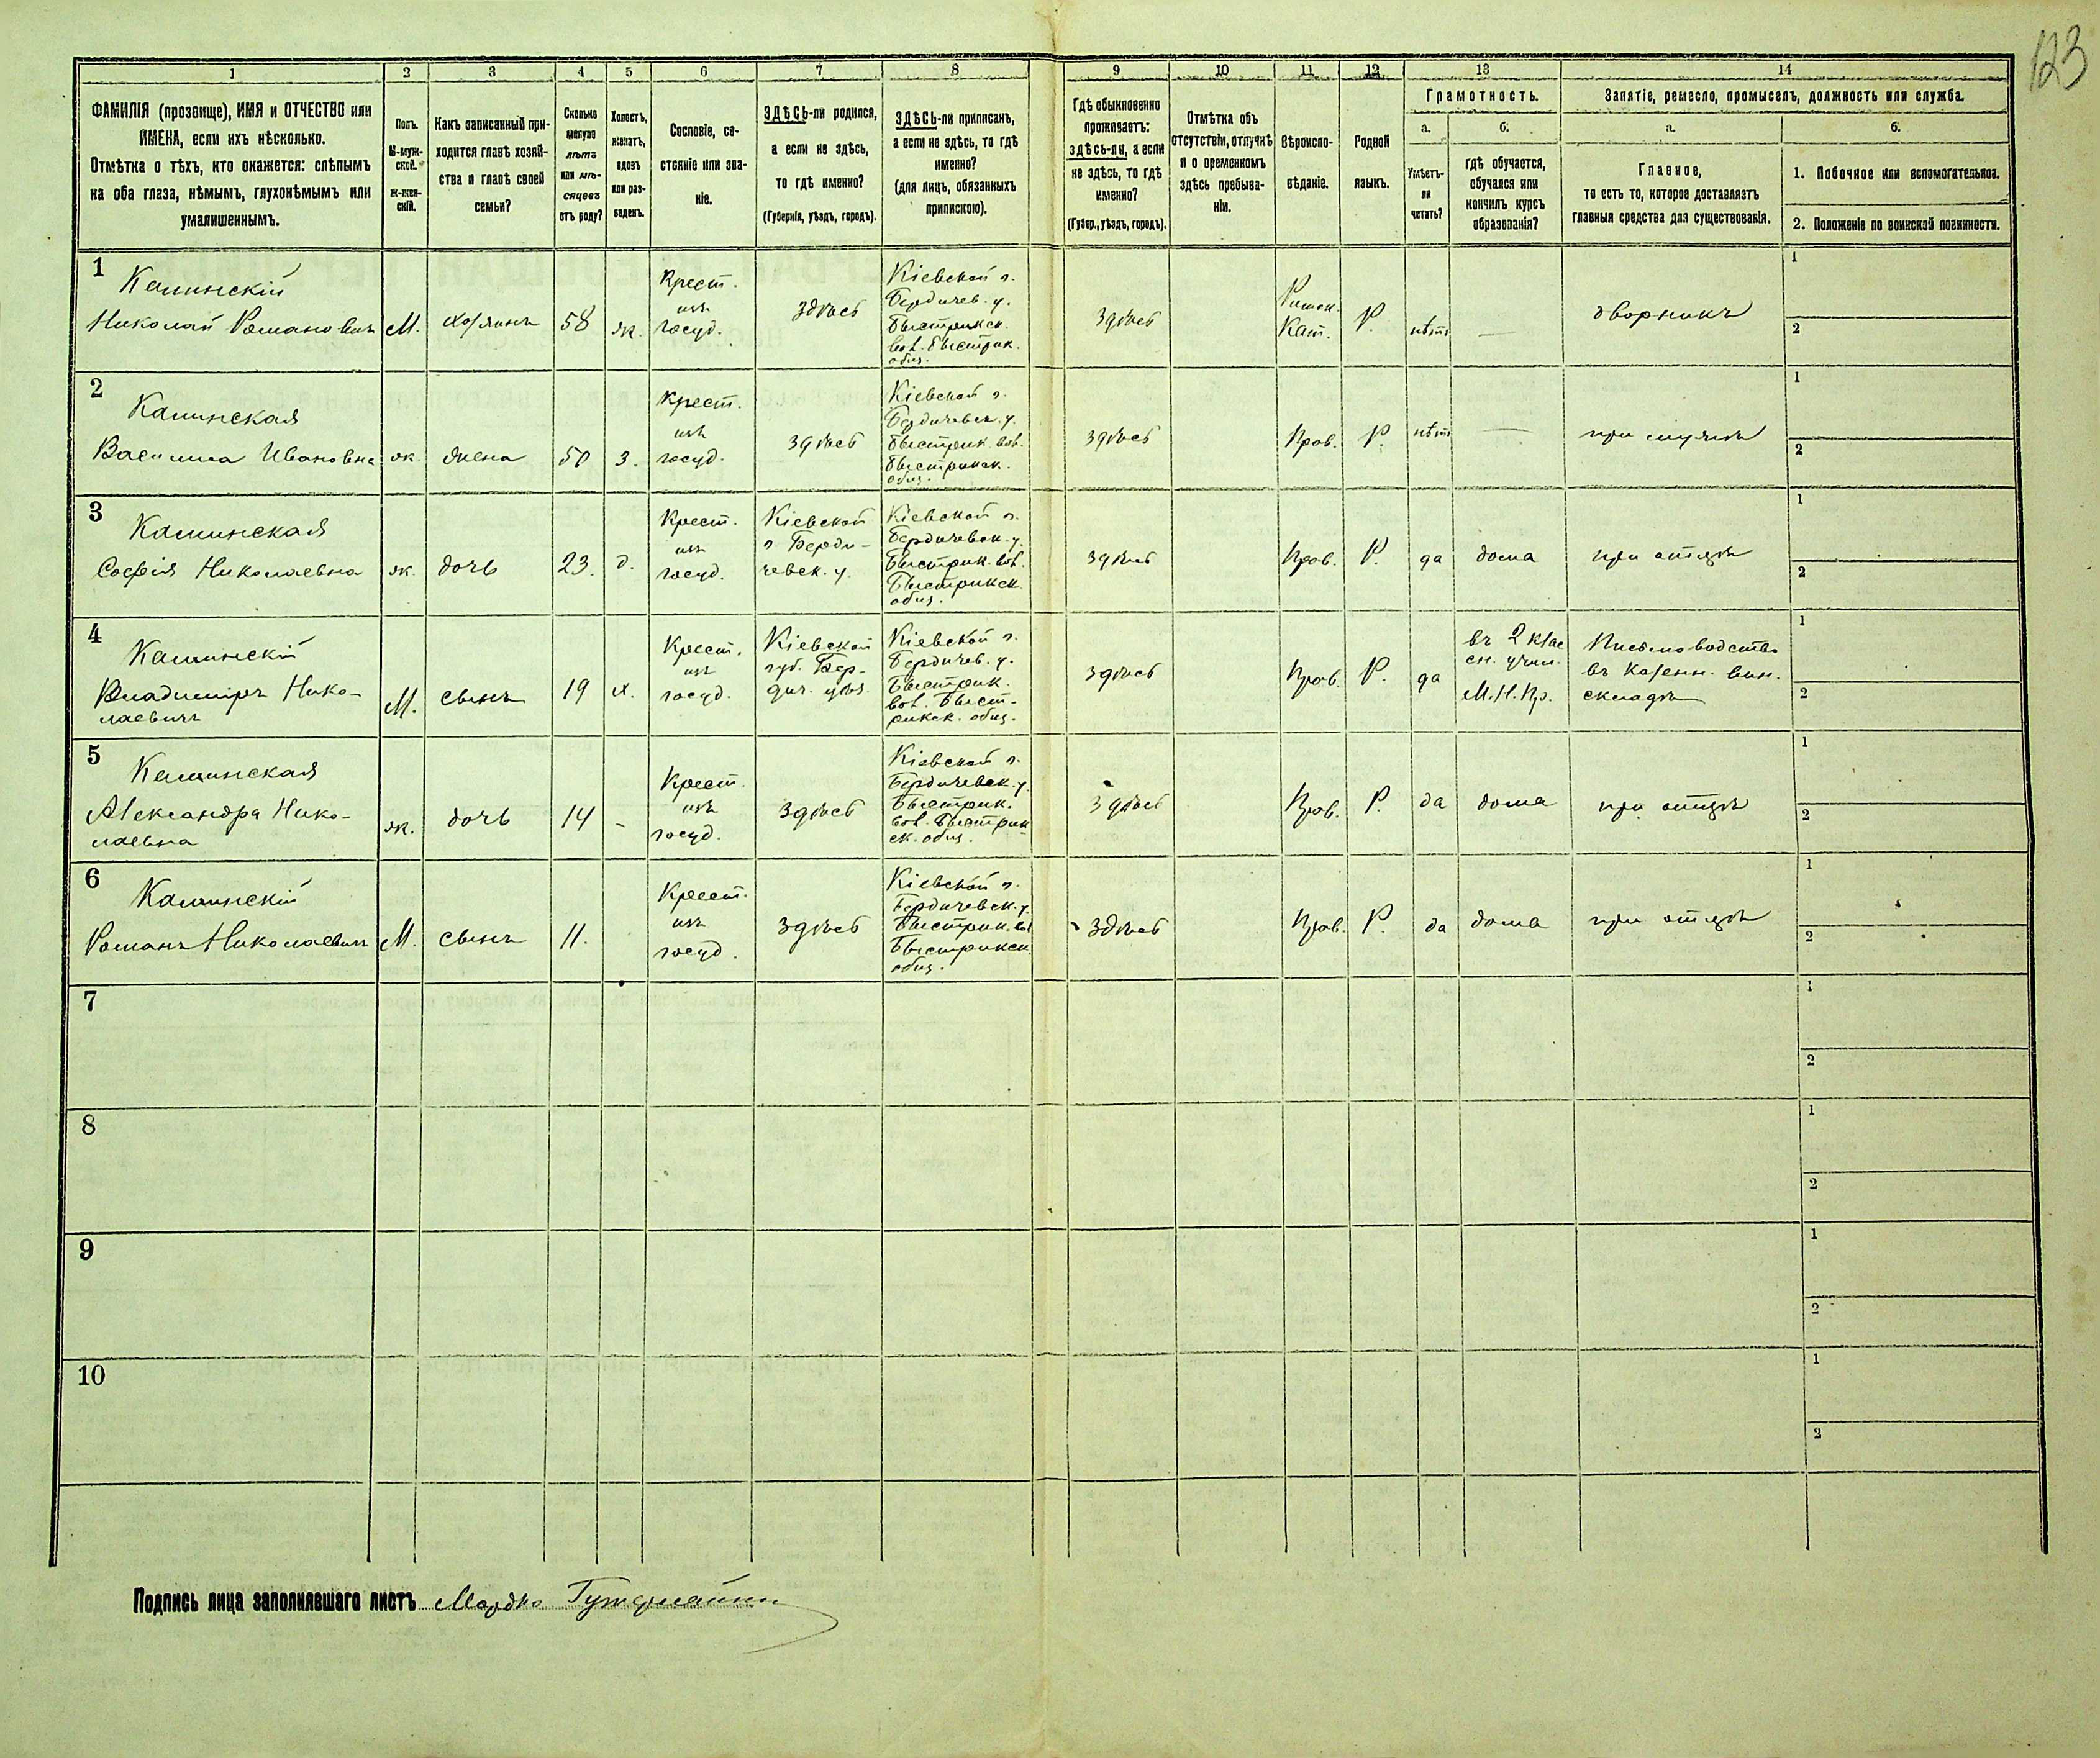 123
1 2 3 4 5 6 7 8 9 10 11 12 13 14
ФАМИЛІЯ (прозвище), ИМЯ и ОТЧЕСТВО или
ИМЕНА, если ихъ нѣсколько.
Отмѣтка о тѣхъ, кто окажется: слѣпымъ
на оба глаза, нѣмымъ, глухонѣмымъ или
умалишеннымъ.
Полъ.
М-муж-
ской.
Ж-жен-
скій.
Какъ записанный при-
ходится главѣ хозяй-
ства и главѣ своей
семьи?
Сколько
минуло
лѣтъ
или мѣ-
сяцевъ
отъ роду?
Холостъ,
женатъ,
вдовъ
или раз-
веденъ.
Сословіе, со-
стояніе или зва-
ніе.
ЗДѢСЬ-ли родился,
а если не здѣсь,
то гдѣ именно?
(Губернія, уѣздъ, городъ).
ЗДѢСЬ-ли приписанъ,
а если не здѣсь, то гдѣ
именно?
(для лицъ, обязанныхъ
припискою).
Гдѣ обыкновенно
проживаетъ:
здѣсь-ли, а если
не здѣсь, то гдѣ
именно?
(Губер., уѣздъ, городъ).
Отмѣтка объ
отсутствіи, отлучкѣ
и о временномъ
здѣсь пребыва-
ніи.
Вѣроиспо-
вѣданіе.
Родной
языкъ.
Грамотность.
а.
Умѣетъ-
ли
читать?
б.
гдѣ обучается,
обучался или
кончилъ курсъ
образованія?
Занятіе, ремесло, промыселъ, должность или служба.
а.
Главное,
то есть то, которое доставляетъ
главныя средства для существованія.
б.
1. Побочное или вспомогательное.
2. Положеніе по воинской повинности.
1
Каминскій
Николай Романовичъ
М.
хозяинъ
58
ж.
Крест.
изъ
госуд.
здѣсь
Кіевской г.
Бердичев. у.
Быстрикск.
вол. Быстрик.
общ.
здѣсь
Римск.
Кат.
Р.
нѣтъ
—
дворникъ
1
2
2
Каминская
Василиса Ивановна
ж.
жена
50
з.
Крест.
изъ
госуд.
здѣсь
Кіевской г.
Бердичевск. у.
Быстрик. вол.
Быстрикск.
общ.
здѣсь
Прав.
Р.
нѣтъ
—
при мужѣ
1
2
3
Каминская
Софія Николаевна
ж.
дочь
23.
д.
Крест.
изъ
госуд.
Кіевской
г. Берди-
чевск. у.
Кіевской г.
Бердичевск. у.
Быстрик. вол.
Быстрикск.
общ.
здѣсь
Прав.
Р.
да
дома
при отцѣ
1
2
4
Каминскій
Владиміръ Нико-
лаевичъ
М.
сынъ
19
х.
Крест.
изъ
госуд.
Кіевской
губ. Бер-
дич. уѣз.
Кіевской г.
Бердичев. у.
Быстрик.
вол. Быст-
рикск. общ.
здѣсь
Прав.
Р.
да
въ 2 клас
ск. учил.
М. Н. Пр.
Письмоводство
въ казенн. вин.
складѣ
1
2
5
Каминская
Александра Нико-
лаевна
ж.
дочь
14
-
Крест.
изъ
госуд.
здѣсь
Кіевской г.
Бердичевск. у.
Быстрик.
вол. Быстрик
ск. общ.
здѣсь
Прав.
Р.
да
дома
при отцѣ
1
2
6
Каминскій
Романъ Николаевичъ
М.
сынъ
11.
Крест.
изъ
госуд.
здѣсь
Кіевской г.
Бердичевск. у.
Быстрик. вол
Быстрикск.
общ.
здѣсь
Прав.
Р.
да
дома
при отцѣ
1
2
7
1
2
8
1
2
9
1
2
10
1
2
Подпись лица заполнявшаго листъ Мордко